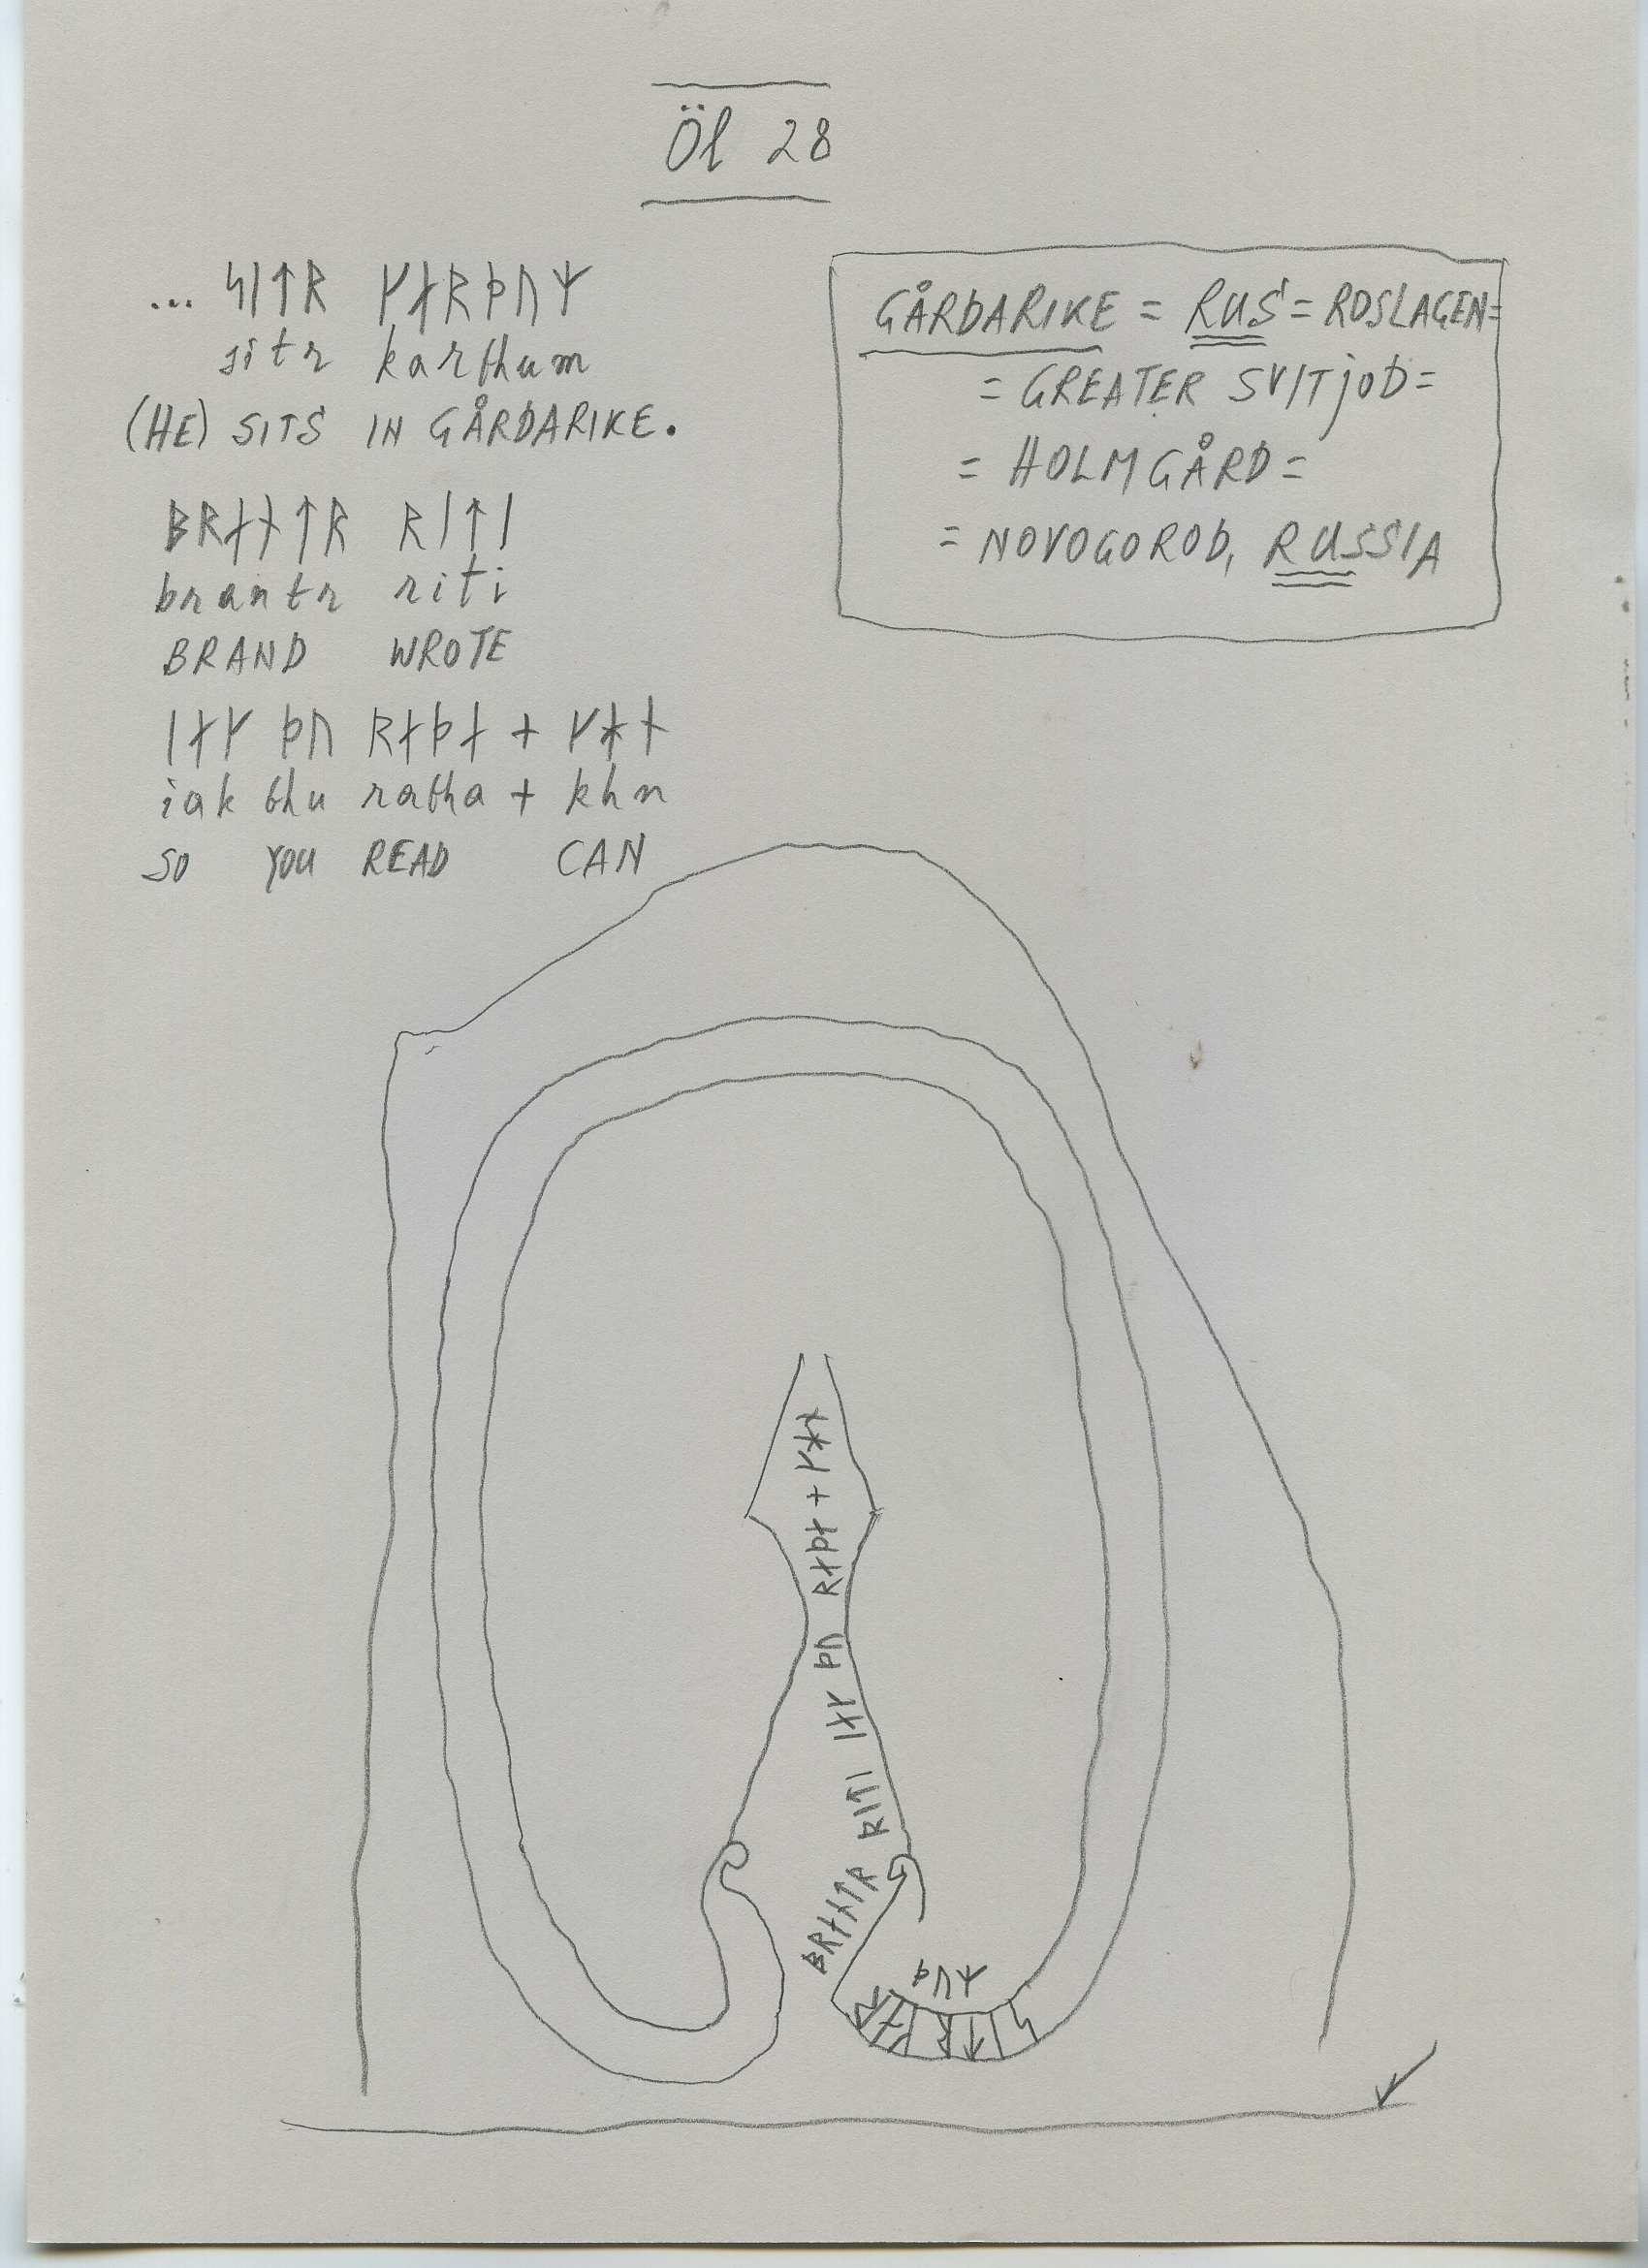 Öl 28
... ᛋᛁᛏᚱ ᚴᛅᚱᚦᚢᛘ
sitr karthum
(HE) SITS IN GÅRÐARIKE.
ᛒᚱᛅᚾᛏᚱ ᚱᛁᛏᛁ
brantr riti
BRAND WROTE
ᛁᛅᚴ ᚦᚢ ᚱᛅᚦᛅ + ᚴᚼᚾ
iak thu ratha + khn
SO YOU READ CAN
GÅRÐARIKE = RUS = ROSLAGEN =
= GREATER SVITJOÐ =
= HOLMGÅRD =
= NOVOGOROD, RUSSIA
ᛒᚱᛅᚾᛏᚱ ᚱᛁᛏᛁ ᛁᛅᚴ ᚦᚢ ᚱᛅᚦᛅ + ᚴᚼᚾ
ᛋᛁᛏᚱ ᚴᛅᚱ
ᚦᚢᛘ